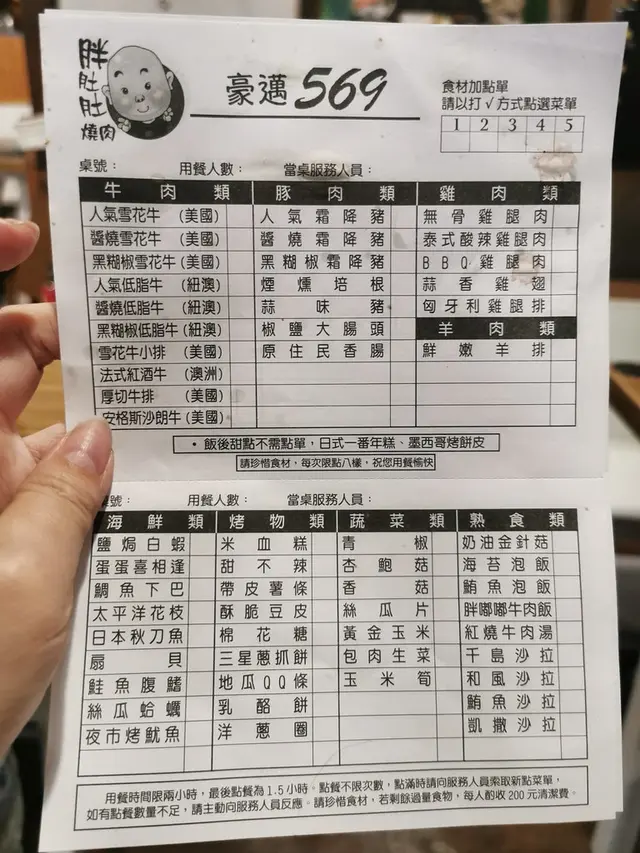 胖肚肚燒肉
豪邁569
食材加點單
請以打√方式點選菜單
1 2 3 4 5
桌號： 用餐人數： 當桌服務人員：
牛肉類 豚肉類 雞肉類
人氣雪花牛 (美國) 人氣霜降豬 無骨雞腿肉
醬燒雪花牛 (美國) 醬燒霜降豬 泰式酸辣雞腿肉
黑糊椒雪花牛 (美國) 黑糊椒霜降豬 BBQ雞腿肉
人氣低脂牛 (紐澳) 煙燻培根 蒜香雞翅
醬燒低脂牛 (紐澳) 蒜味豬 匈牙利雞腿排
黑糊椒低脂牛 (紐澳) 椒鹽大腸頭 羊肉類
雪花牛小排 (美國) 原住民香腸 鮮嫩羊排
法式紅酒牛 (澳洲)
厚切牛排 (美國)
安格斯沙朗牛 (美國)
• 飯後甜點不需點單，日式一番年糕、墨西哥烤餅皮
請珍惜食材，每次限點八樣，祝您用餐愉快
號： 用餐人數： 當桌服務人員：
海鮮類 烤物類 蔬菜類 熟食類
鹽焗白蝦 米血糕 青椒 奶油金針菇
蛋蛋喜相逢 甜不辣 杏鮑菇 海苔泡飯
鯛魚下巴 帶皮薯條 香菇 鮪魚泡飯
太平洋花枝 酥脆豆皮 絲瓜片 胖嘟嘟牛肉飯
日本秋刀魚 棉花糖 黃金玉米 紅燒牛肉湯
扇貝 三星蔥抓餅 包肉生菜 千島沙拉
鮭魚腹鰭 地瓜QQ條 玉米筍 和風沙拉
絲瓜蛤蠣 乳酪餅 鮪魚沙拉
夜市烤魷魚 洋蔥圈 凱撒沙拉
用餐時間限兩小時，最後點餐為1.5小時。點餐不限次數，點滿時請向服務人員索取新點菜單，
如有點餐數量不足，請主動向服務人員反應。請珍惜食材，若剩餘過量食物，每人酌收200元清潔費。